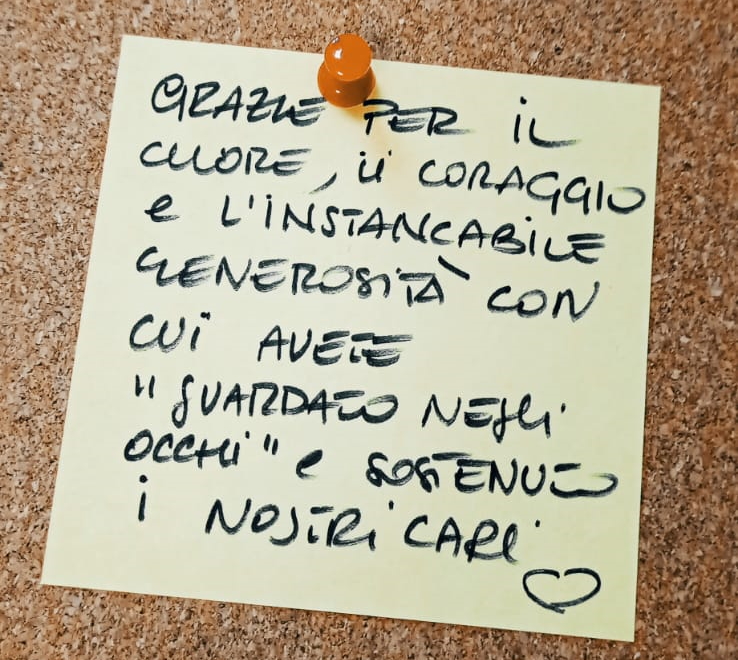 GRAZIE PER IL
CUORE, il CORAGGIO
e L'INSTANCABILE
GENEROSITÀ CON
CUI AVETE
"GUARDATO NEGLI
OCCHI" e SOSTENUTO
i NOSTRI CARI ♡